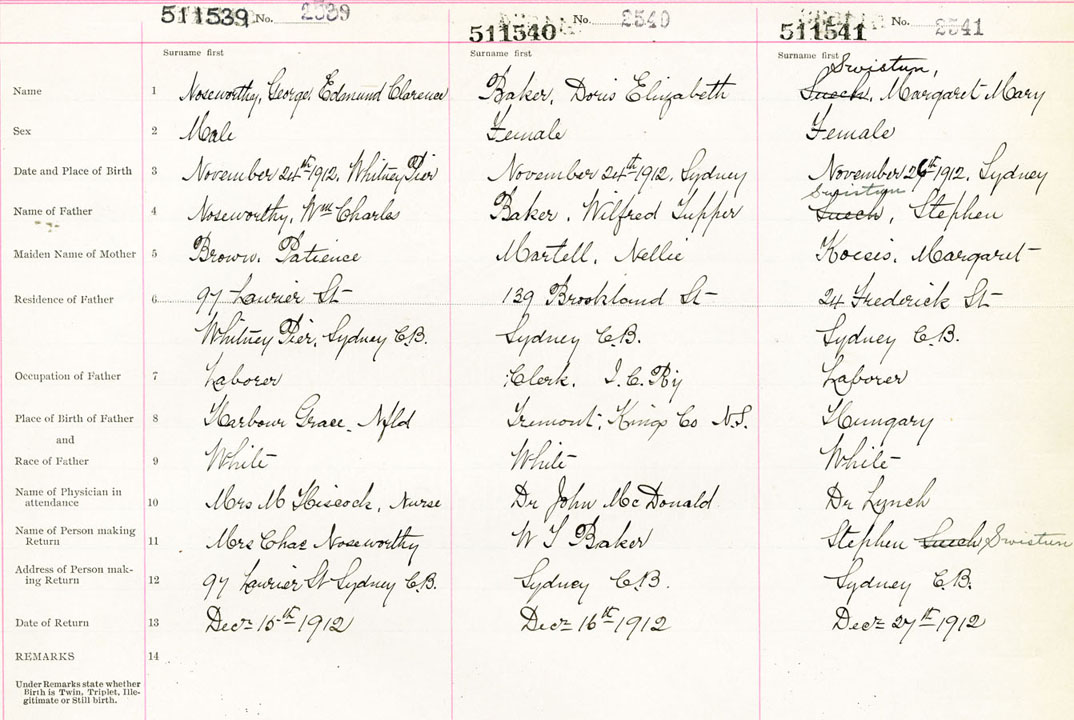 511539 No. 2539 511540 No. 2540 511541 No. 2541
Surname first Surname first Surname first
Swistun,
Name 1 Noseworthy, George Edmund Clarence Baker, Doris Elizabeth Such, Margaret Mary
Sex 2 Male Female Female
Date and Place of Birth 3 November 24th 1912, Whitney Pier November 24th 1912, Sydney November 26th 1912, Sydney
Swistun
Name of Father 4 Noseworthy, Wm Charles Baker, Wilfred Tupper Such, Stephen
Maiden Name of Mother 5 Brown, Patience Martell, Nellie Kocsis, Margaret
Residence of Father 6 97 Laurier St 139 Brookland St 24 Frederick St
Whitney Pier, Sydney C.B. Sydney C.B. Sydney C.B.
Occupation of Father 7 Laborer Clerk, I.C. Ry Laborer
Place of Birth of Father 8 Harbour Grace, Nfld Tremont, Kings Co N.S. Hungary
and
Race of Father 9 White White White
Name of Physician in
attendance 10 Mrs M Hiscock, Nurse Dr John McDonald Dr Lynch
Name of Person making
Return 11 Mrs Chas Noseworthy W T Baker Stephen Such Swistun
Address of Person mak-
ing Return 12 97 Laurier St Sydney C.B. Sydney C.B. Sydney C.B.
Date of Return 13 Decr 15th 1912 Decr 16th 1912 Decr 27th 1912
REMARKS 14
Under Remarks state whether
Birth is Twin, Triplet, Ille-
gitimate or Still birth.